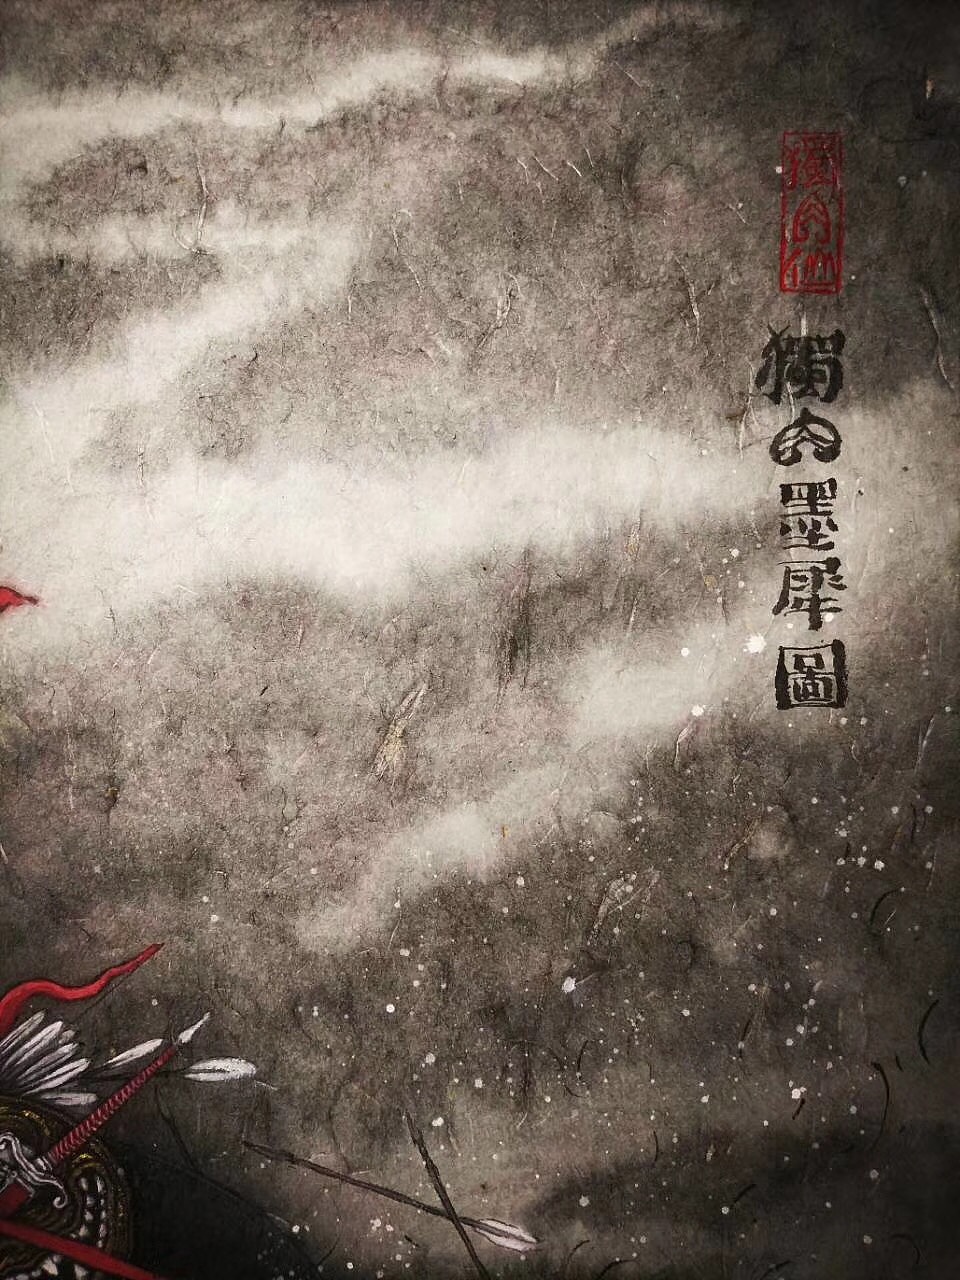 獨角仙
獨角墨犀圖